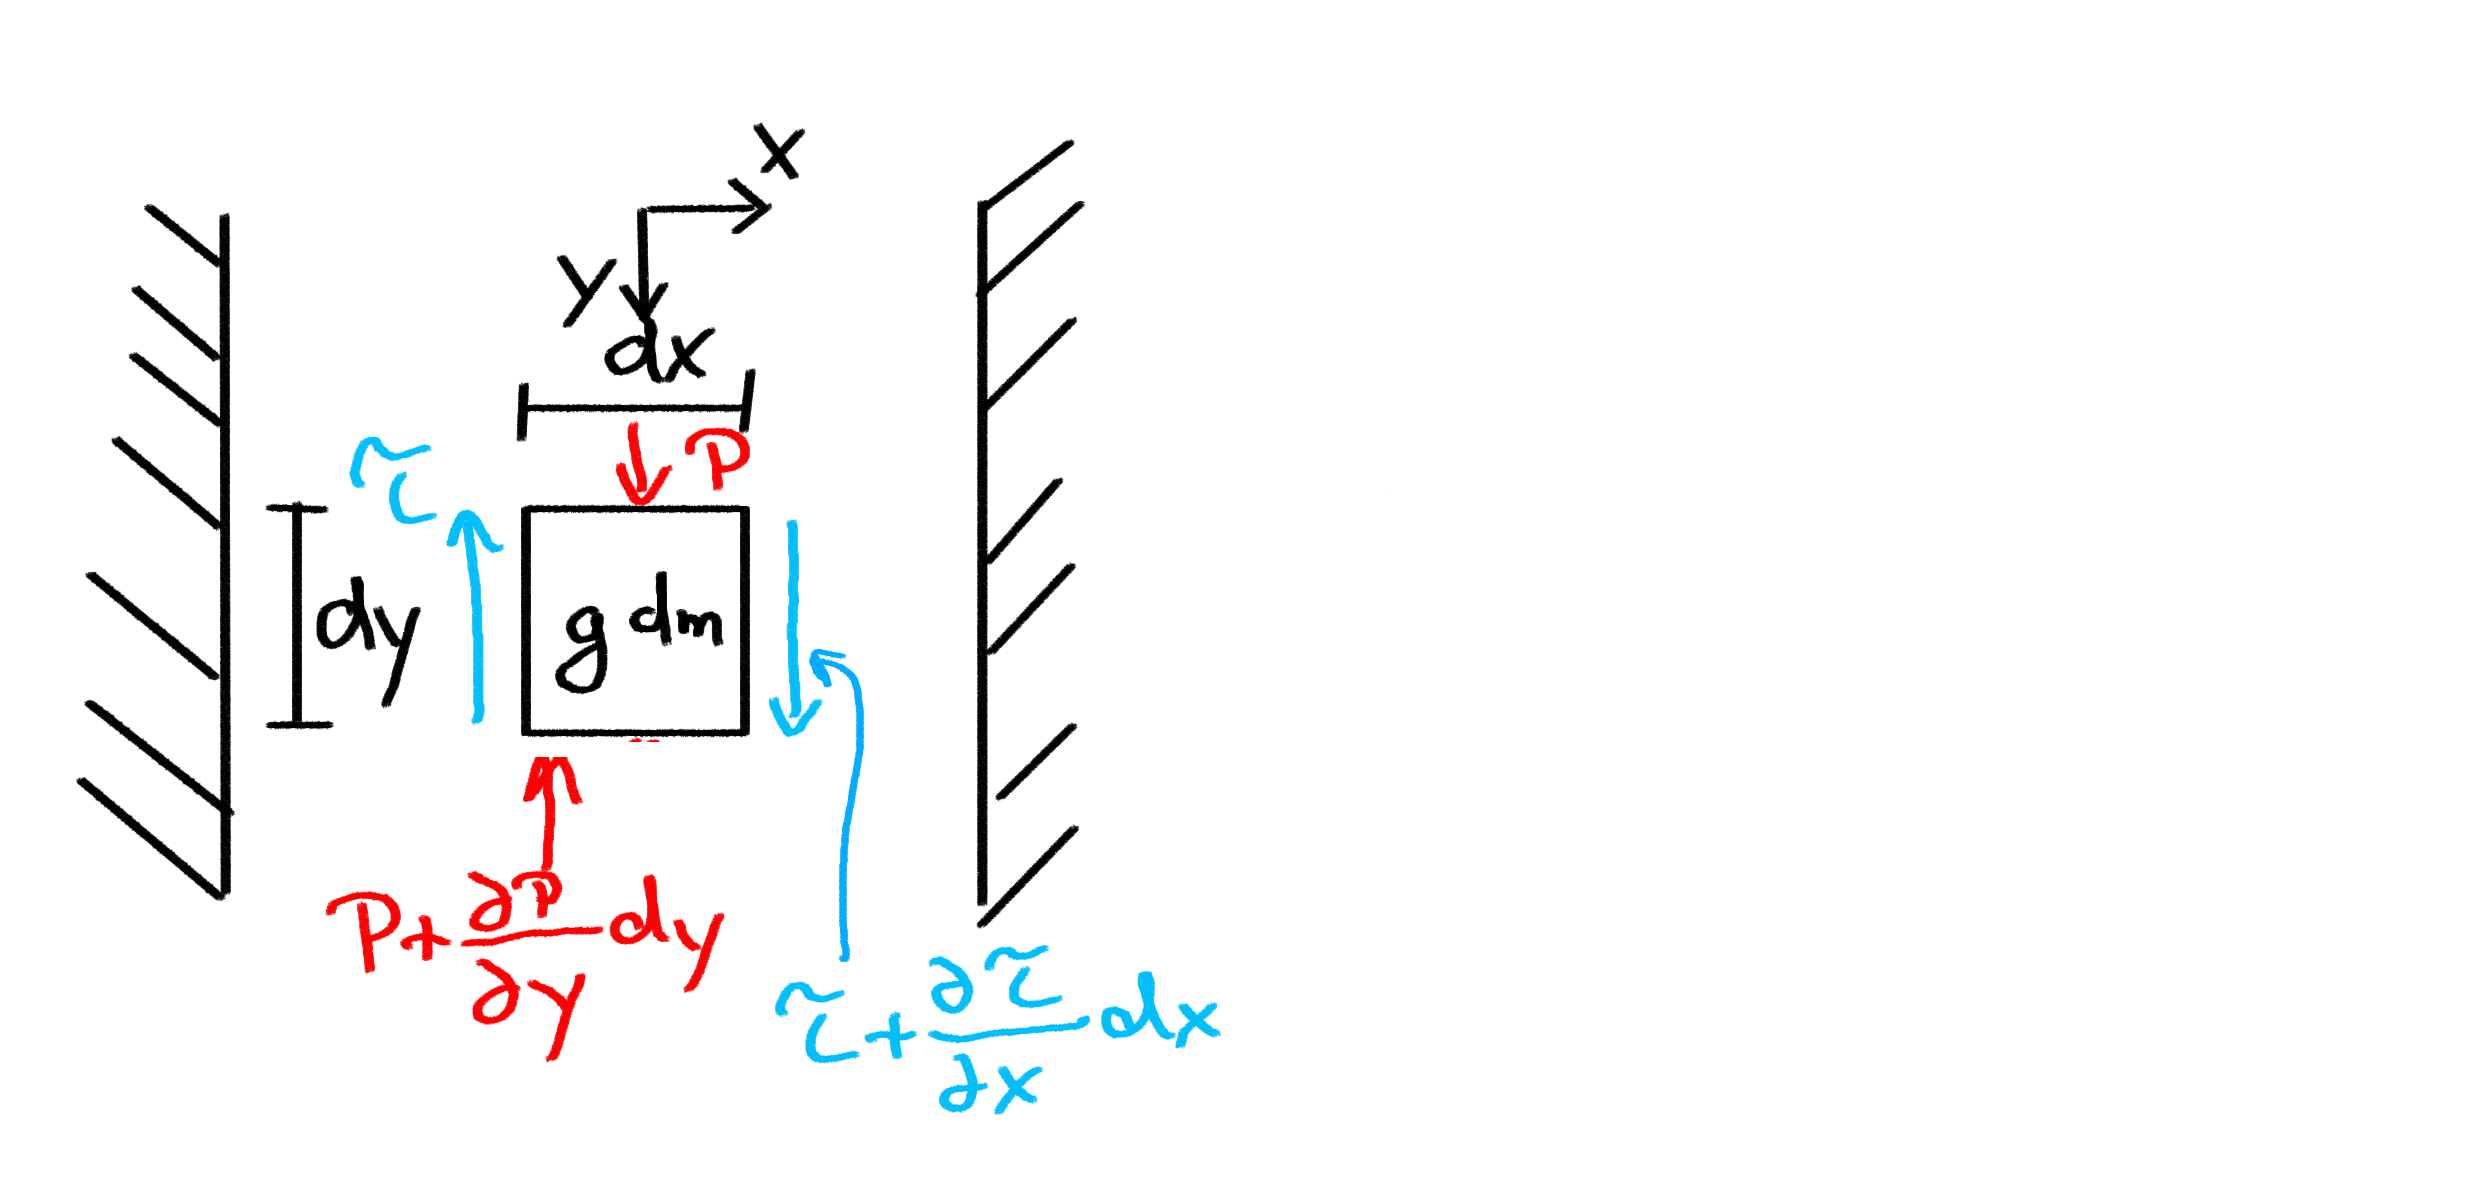 x
y
dx
τ
P
dy
g dm
P+∂P/∂y dy
τ+∂τ/∂x dx